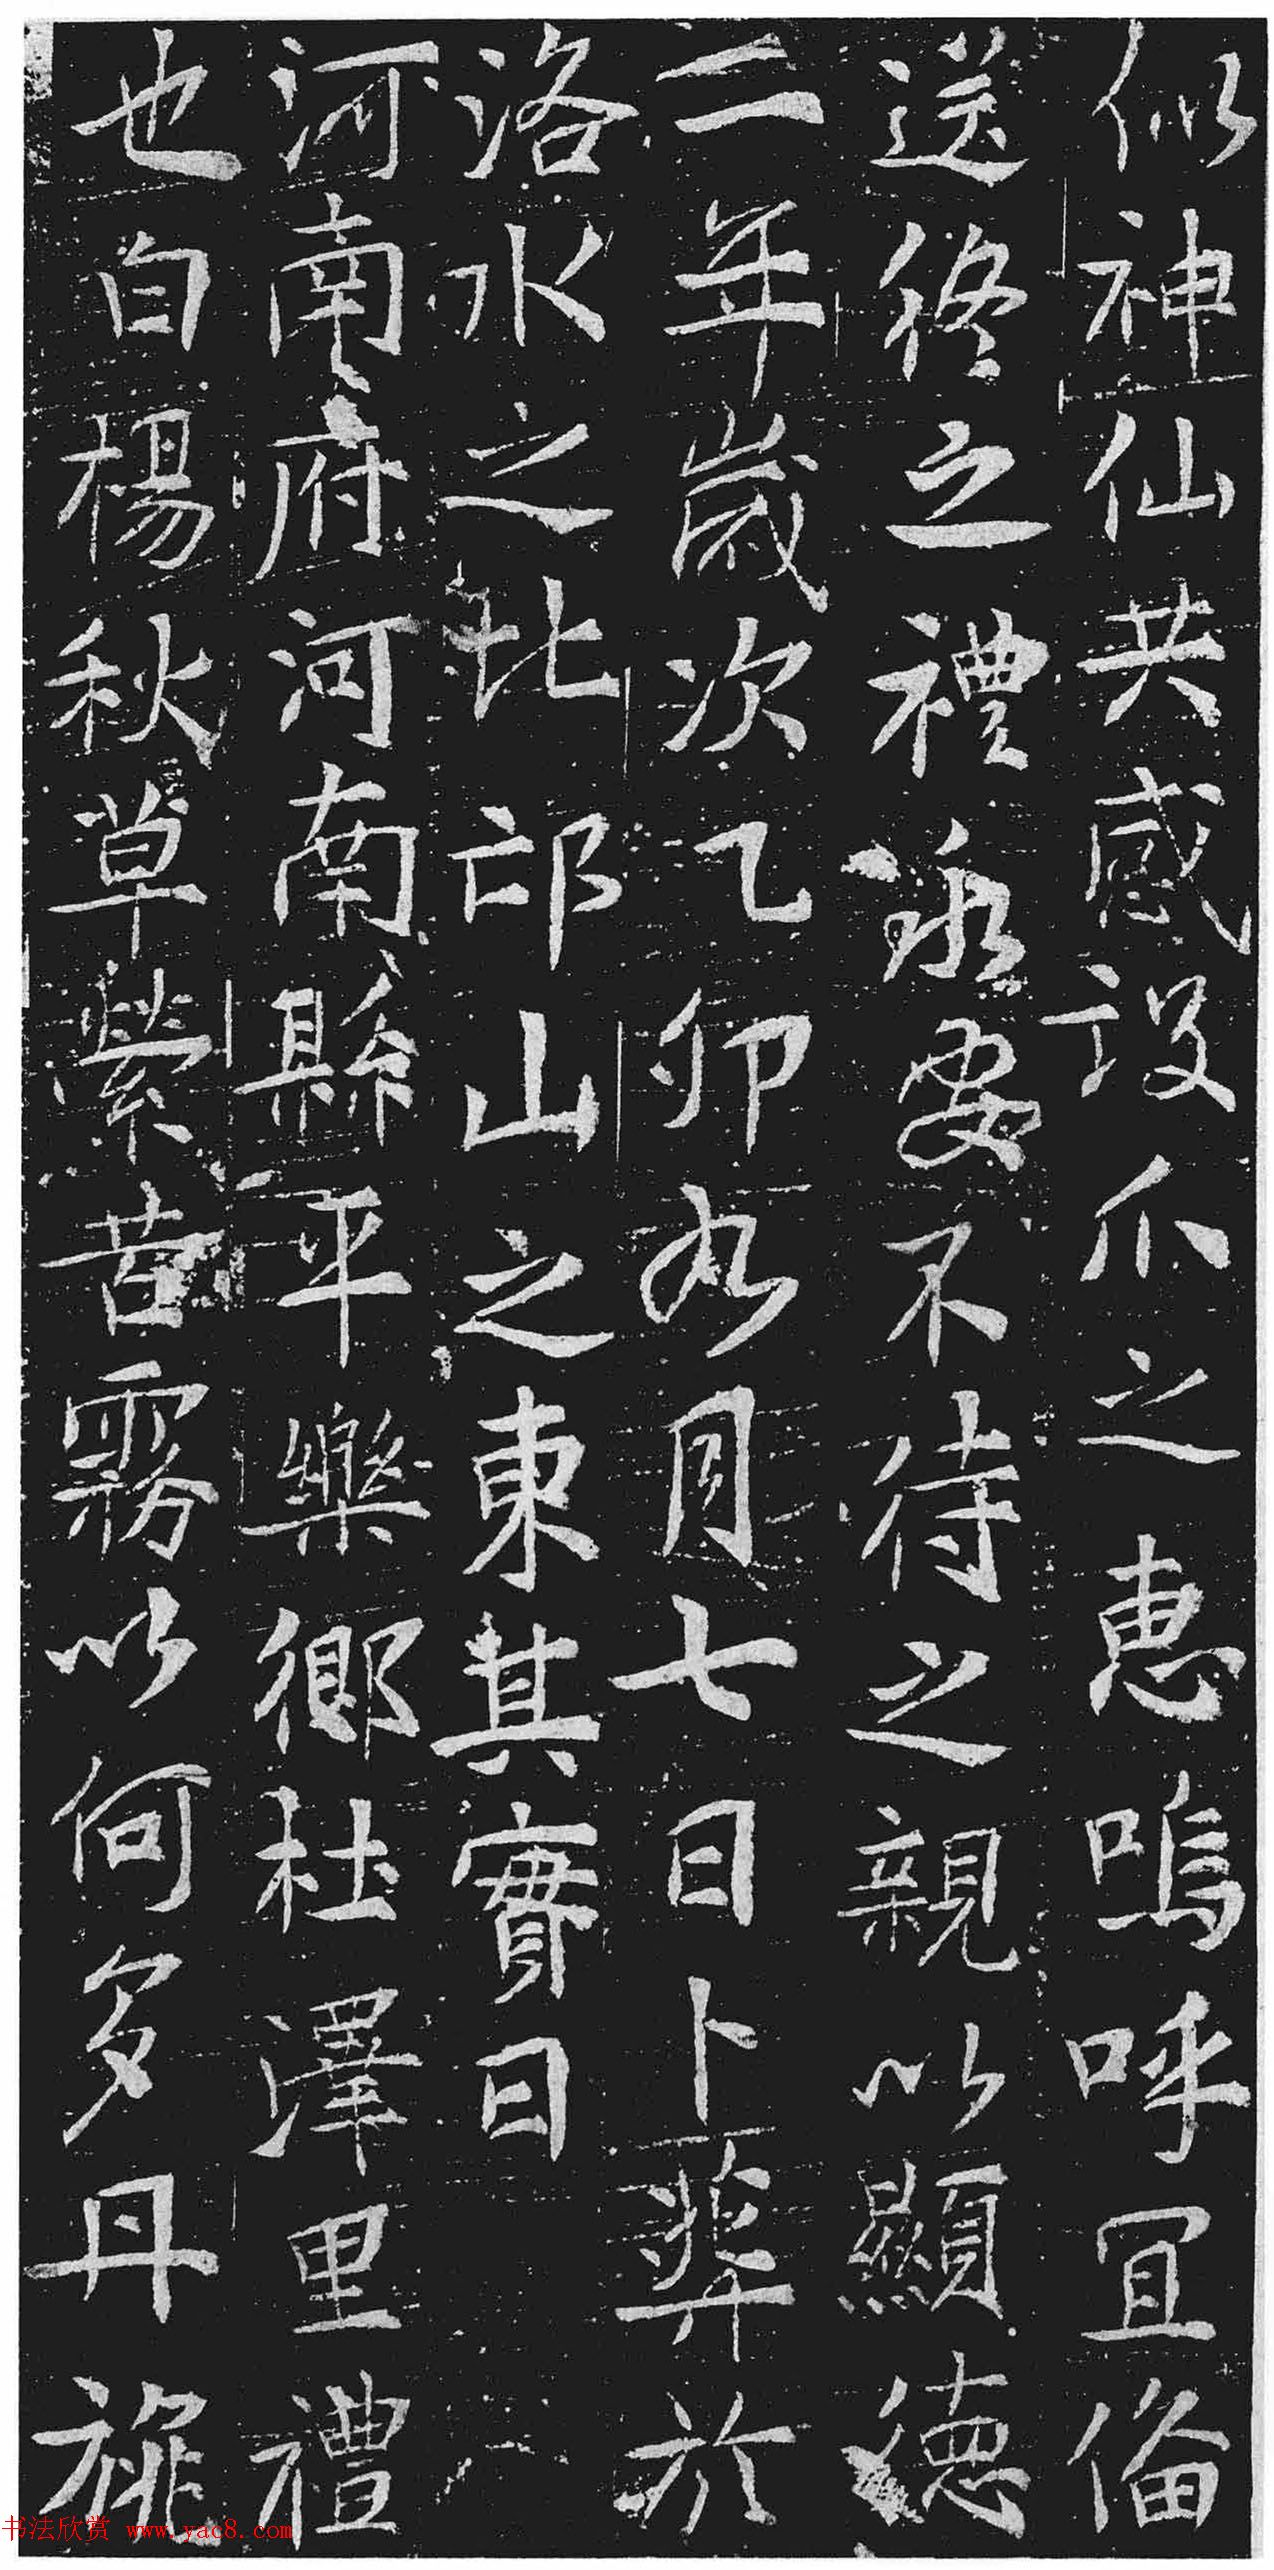 似神仙共感設爪之惠嗚呼宜俻
送終之禮咏要不待之親以顯德
二年歲次乙卯九月七日卜葬於
洛水之北邙山之東其實曰
河南府河南縣平樂鄉杜澤里禮
也白楊秋草縈苦霧以何多丹旐
书法欣赏 www.yac8.com